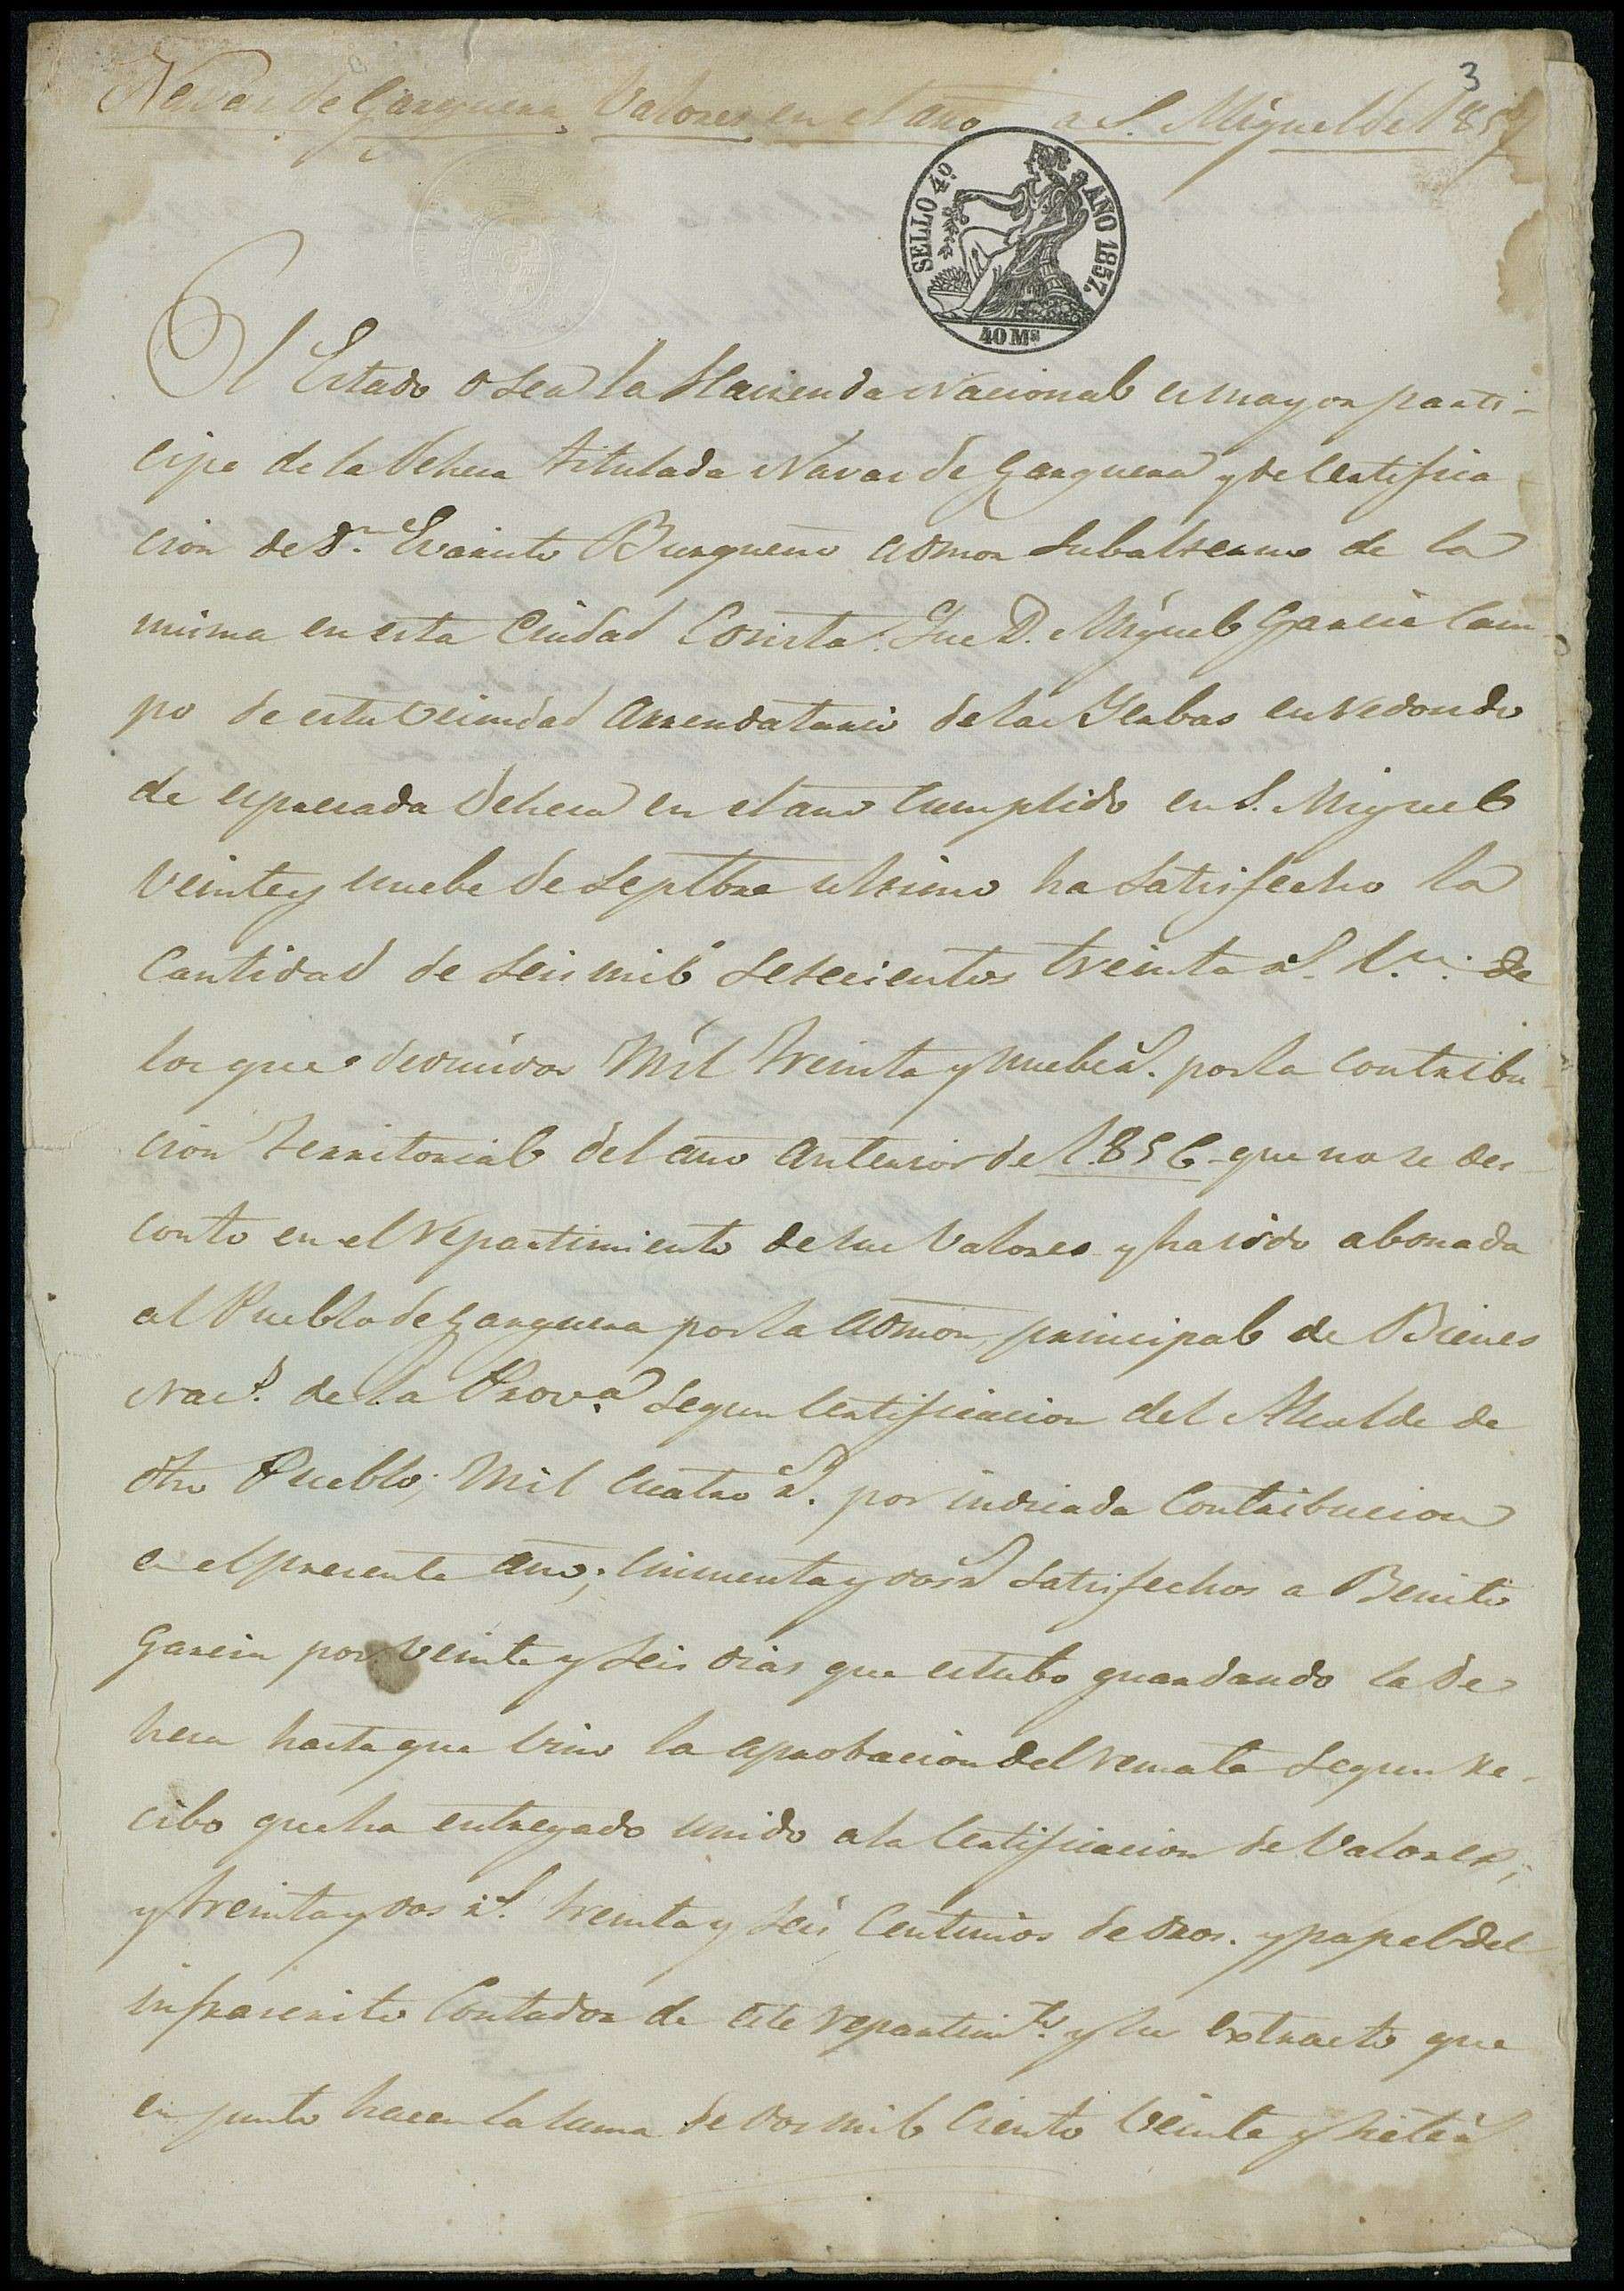 3
Navas de Garguera, Valores en el año a S. Miguel de 1857
SELLO 4º AÑO 1857.
40 Ms
El Estado o sea la Hacienda Nacional es mayor parti-
cipe de la Dehesa titulada Navas de Garguera y de Certifica
cion de Dn. Evaristo Burgueño Admor Subalterno de la
misma en esta Ciudad Consta: Que D. Miguel Garcia Cam
po de esta vecindad arrendatario de las Yerbas en redondo
de espresada Dehesa en el año cumplido en S. Miguel
veinte y nuebe de Septbre ultimo ha satisfecho la
Cantidad de seis mil setecientos treinta rs. vn. de
los que deducidos Mil treinta y nuebe rs. por la contribu
cion territorial del año anterior de 1.856 que no se des
conto en el repartimiento de sus Valores y ha sido abonada
al Pueblo de Garguera por la admon principal de Bienes
Nacs. de la Prova. segun Certificacion del Alcalde de
dho Pueblo; Mil cuatro rs. por indicada Contribucion
en el presente año; cincuenta y dos rs satisfechos a Benito
Garcia por veinte y seis dias que estubo guardando la De
hesa hasta que vino la aprobacion del remate segun re-
cibo que ha entregado unido a la Certificacion de Valores;
y treinta y dos rs. treinta y seis Centimos de dros. y papel del
infrascrito Contador de este repartimto. y su extracto que
en junto hacen la suma de dos mil ciento veinte y siete rs